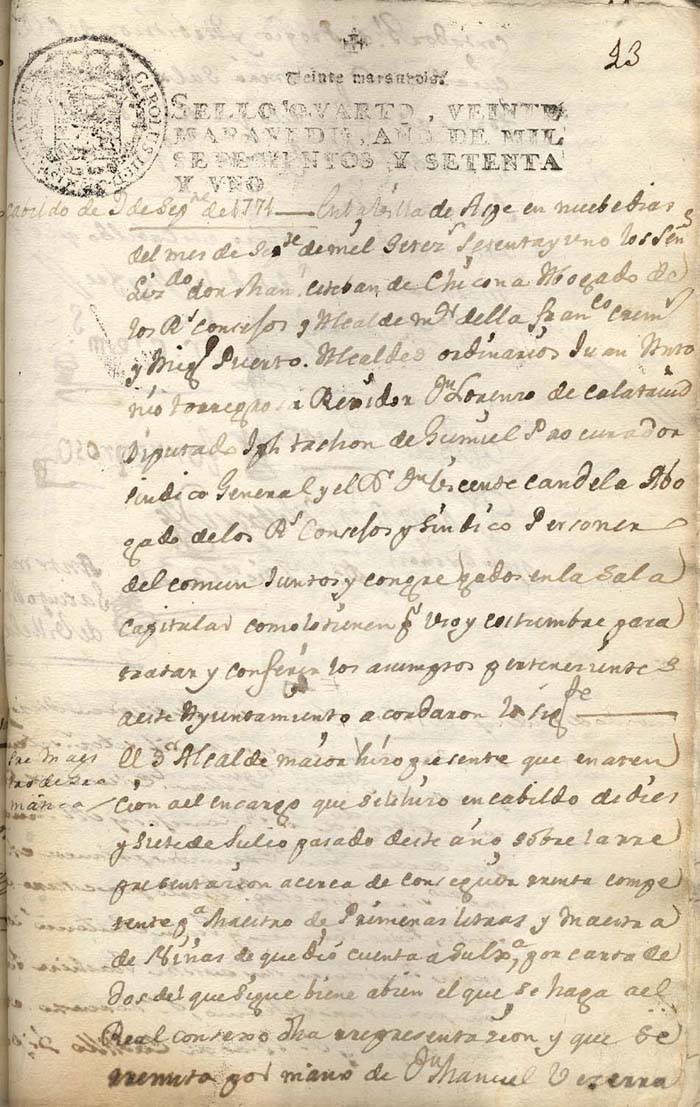 23
Veinte maravedis.
SELLO QVARTO, VEINTE
MARAVEDIS, AÑO DE MIL
SETECIENTOS Y SETENTA
Y VNO
CAROLUS III D
Cavildo de 9 de Sepre de 1771 En la Villa de Aspe en nuebe dias
del mes de Sepre de mil setezs setenta y uno los señs
Lizdo don Manl esteban de Chicona Abogado de
los Rs consejos y Alcalde mor de ella Franco crem
y Migl Puerto. Alcaldes ordinarios Juan Anto
nio torregrosa Rexidor Dn Lorenzo de calataiud
Diputado Jph tachon de Gumiel Procurador
sindico General y el Dr Dn Vicente candela Abo
gado de los Rs Consejos y Sindico Personer
del comun Juntos y congregados en la sala
capitular como lo tienen pr uso y costumbre para
tratar y conferir los asumptos pertenesiente s
a este Ayuntamiento acordaron lo sigte
El Sr Alcalde maior hizo presente que en aten
cion a el encargo que se le hizo en cabildo de dies
y siete de Julio pasado de este año sobre la rre
presentazion acerca de conseguir rrenta compe
tente pa Maestro de Primeras letras y maestra
de Niñas de que dió cuenta a Su Exa, por carta de
dos del que sigue biene a bien el que se haga a el
Real consexo dha rrepresentazion y que se
rremita por mano de Dn Manuel Vezerra